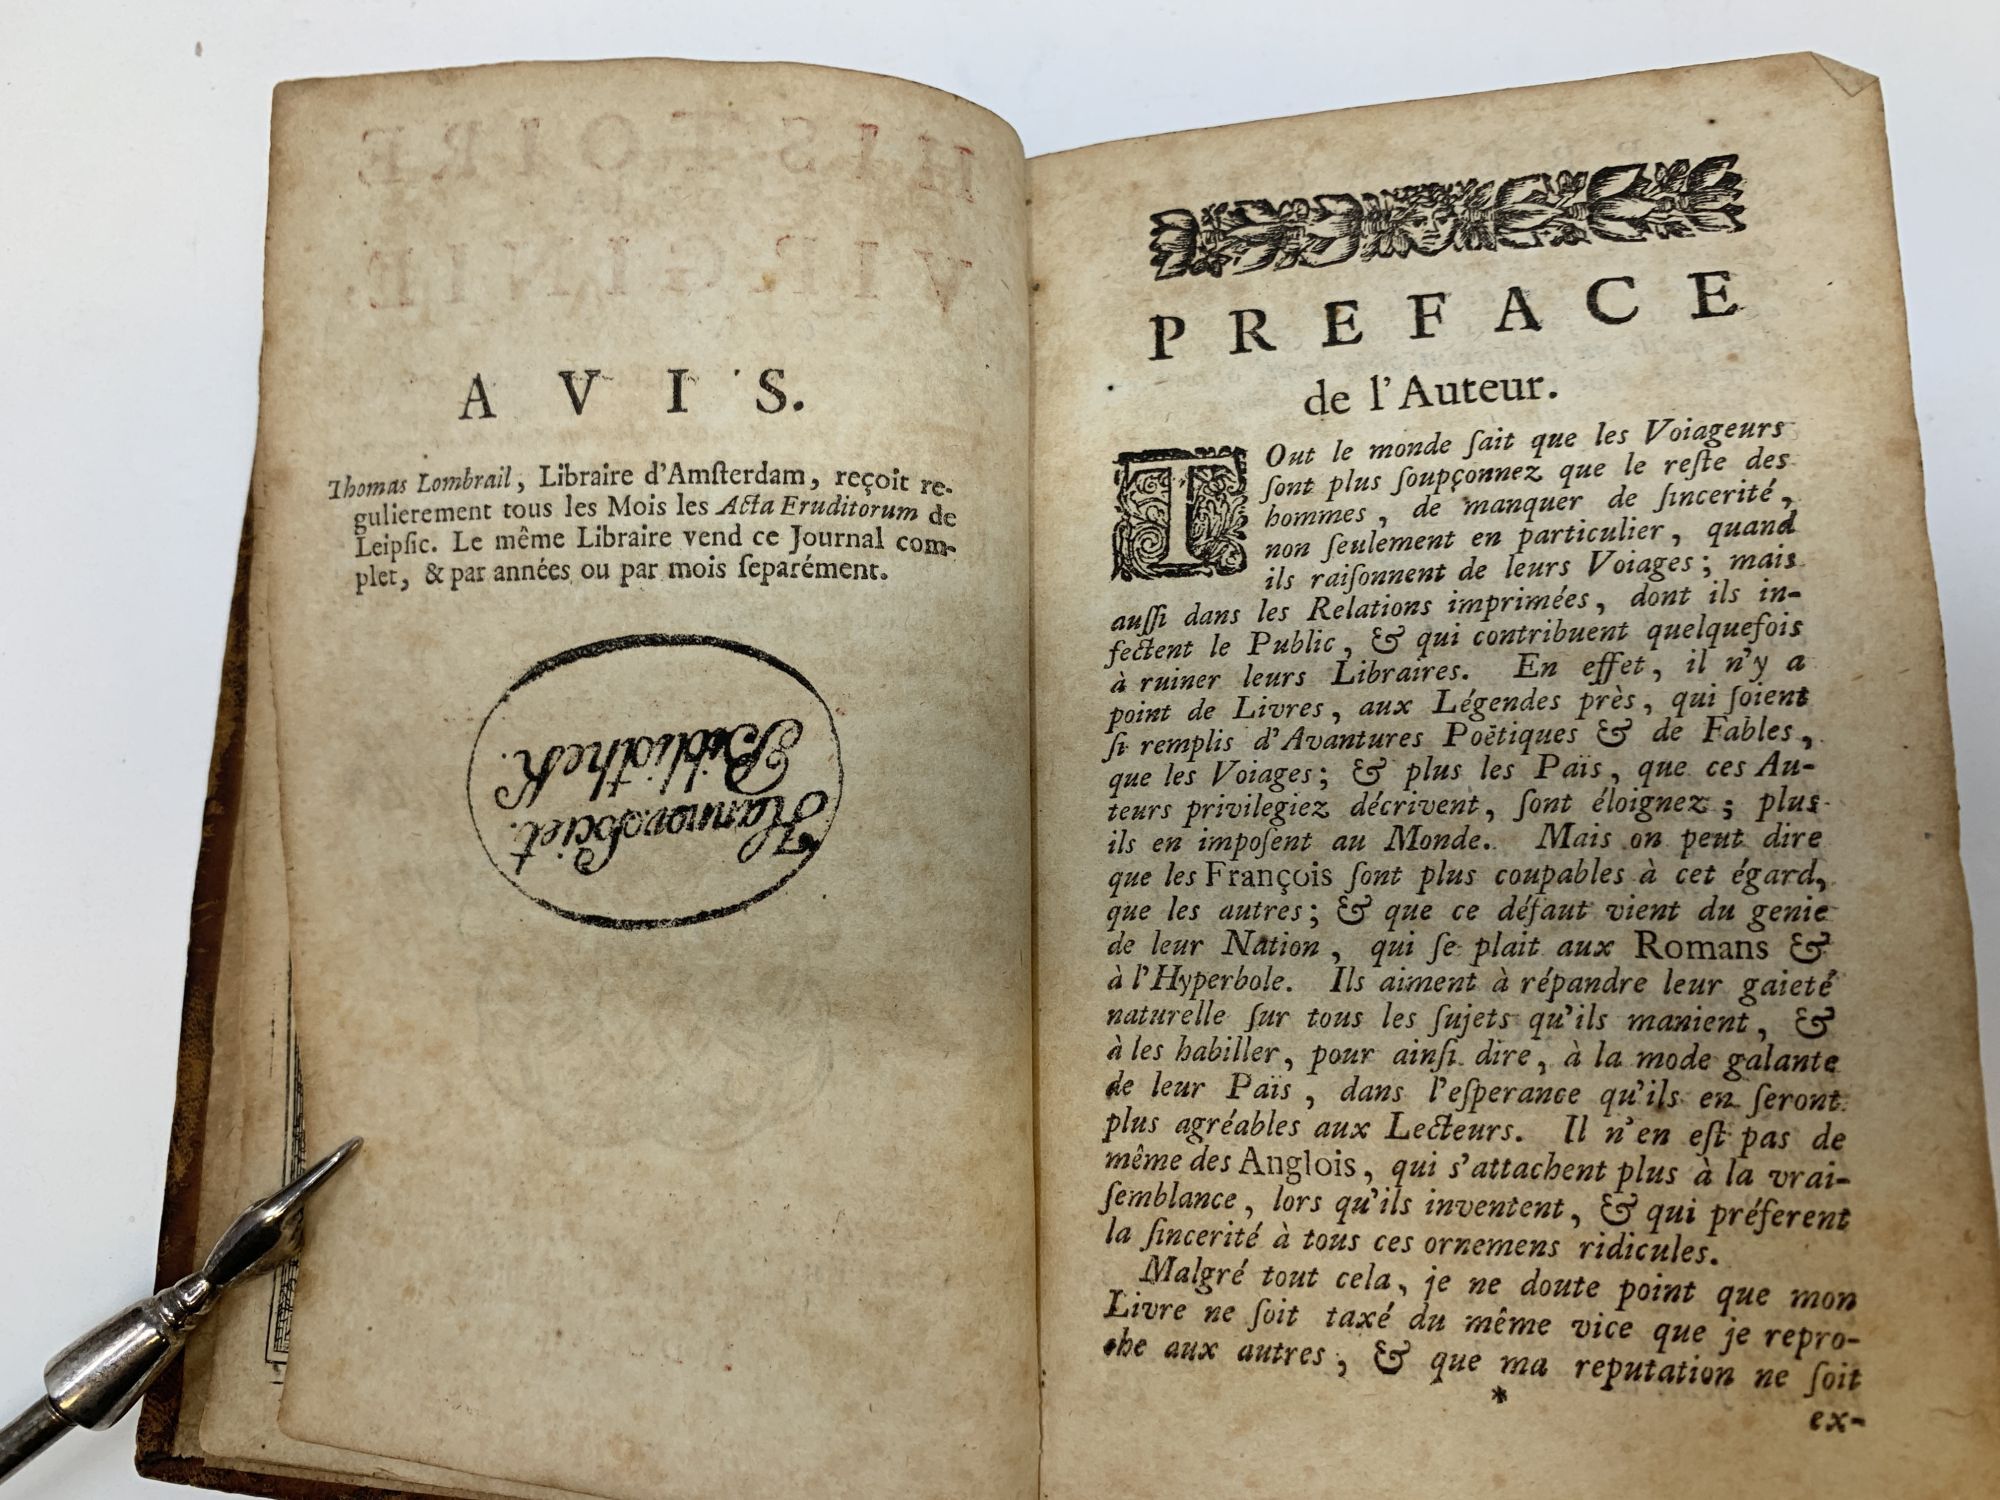 HISTOIRE
VIRGINIE.
A V I S.
Thomas Lombrail, Libraire d'Amſterdam, reçoit re-
gulierement tous les Mois les Acta Eruditorum de
Leipſic. Le même Libraire vend ce Journal com-
plet, & par années ou par mois ſeparément.
Hannov. Societ.
Bibliothek.
PREFACE
de l'Auteur.
TOut le monde ſait que les Voiageurs
ſont plus ſoupçonnez que le reſte des
hommes, de manquer de ſincerité,
non ſeulement en particulier, quand
ils raiſonnent de leurs Voiages; mais
auſſi dans les Relations imprimées, dont ils in-
fectent le Public, & qui contribuent quelquefois
à ruiner leurs Libraires. En effet, il n'y a
point de Livres, aux Légendes près, qui ſoient
ſi remplis d'Avantures Poëtiques & de Fables,
que les Voiages; & plus les Païs, que ces Au-
teurs privilegiez décrivent, ſont éloignez; plus
ils en impoſent au Monde. Mais on peut dire
que les François ſont plus coupables à cet égard,
que les autres; & que ce défaut vient du genie
de leur Nation, qui ſe plait aux Romans &
à l'Hyperbole. Ils aiment à répandre leur gaieté
naturelle ſur tous les ſujets qu'ils manient, &
à les habiller, pour ainſi dire, à la mode galante
de leur Païs, dans l'eſperance qu'ils en ſeront
plus agréables aux Lecteurs. Il n'en eſt pas de
même des Anglois, qui s'attachent plus à la vrai-
ſemblance, lors qu'ils inventent, & qui préferent
la ſincerité à tous ces ornemens ridicules.
Malgré tout cela, je ne doute point que mon
Livre ne ſoit taxé du même vice que je repro-
che aux autres, & que ma reputation ne ſoit
*
ex-